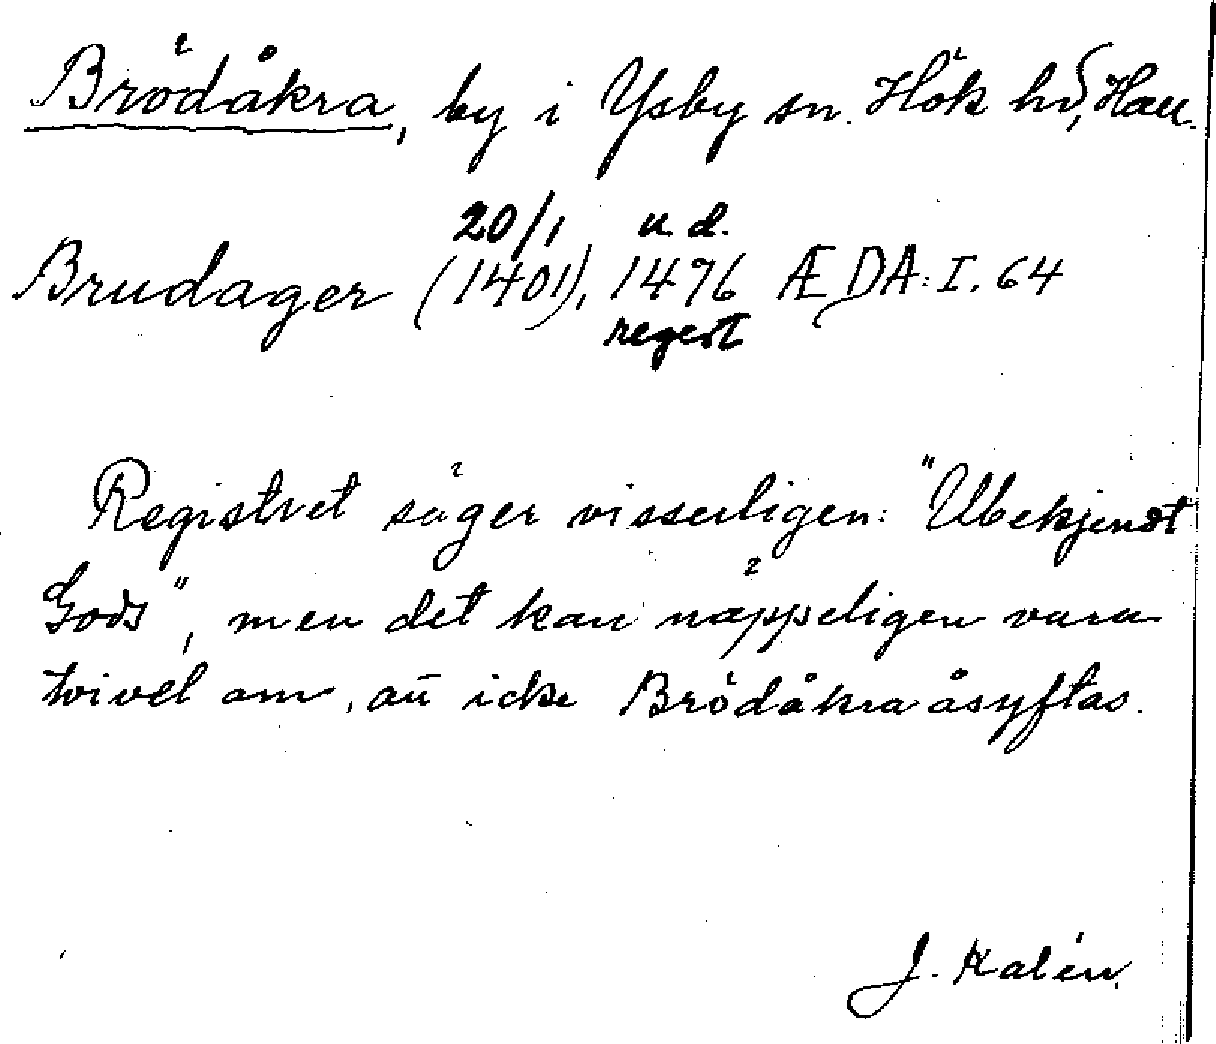 Brödåkra, by i Ysby sn. Hök hd, Hall.
20/1 u. d.
Brudager (1401), 1476 ÆDA: I. 64
regest
Registret säger visserligen: "Ubekjendt
Gods", men det kan näppeligen vara
tvivel om, att icke Brödåkra åsyftas.
J. Kalén.